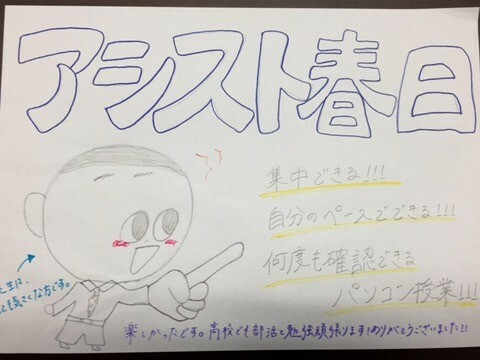 アシスト春日
集中できる!!!
自分のペースでできる!!!
何度も確認できる
パソコン授業!!!
生は、
ても気さくな方です。
楽しかったです。高校でも部活と勉強頑張ります!ありがとうございました!!